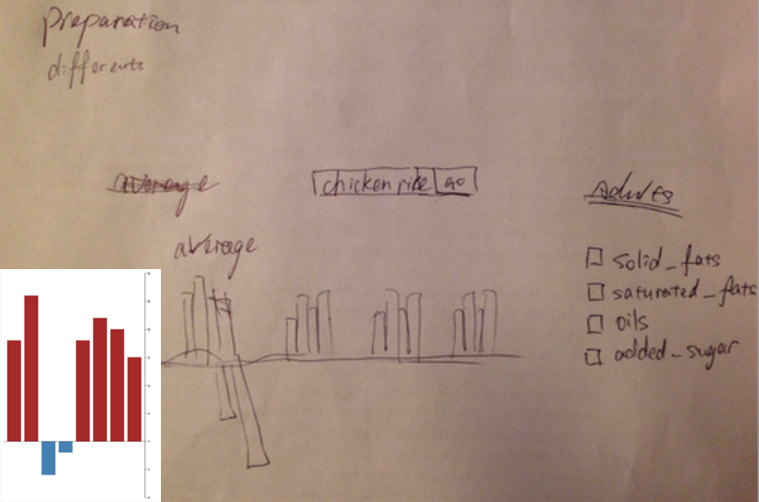 preparation
differents
average
chicken rice go
average
Adults
solid_fats
saturated_fats
oils
added_sugar